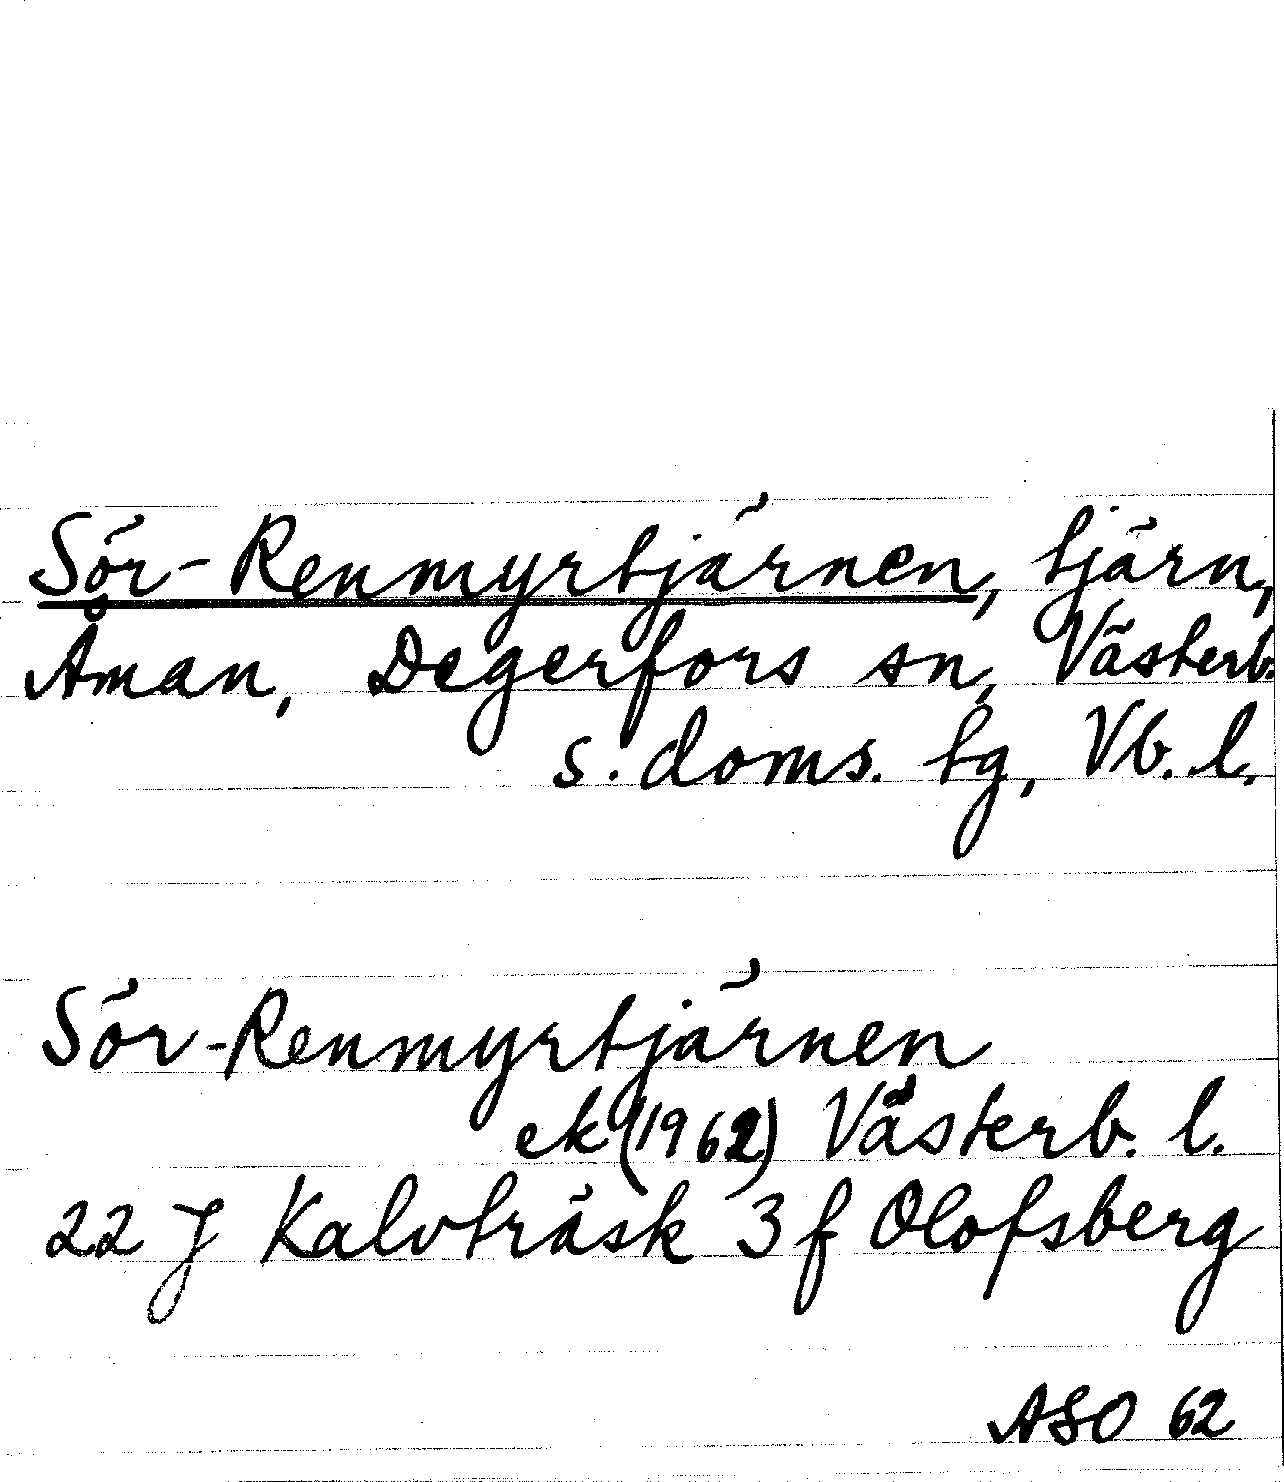 Sör-Renmyrtjärnen, tjärn,
Åman, Degerfors sn, Västerb.
s. doms. tg, Vb. l.
Sör-Renmyrtjärnen
ek (1962) Västerb. l.
22 J Kalvträsk 3 f Olofsberg
ASO 62